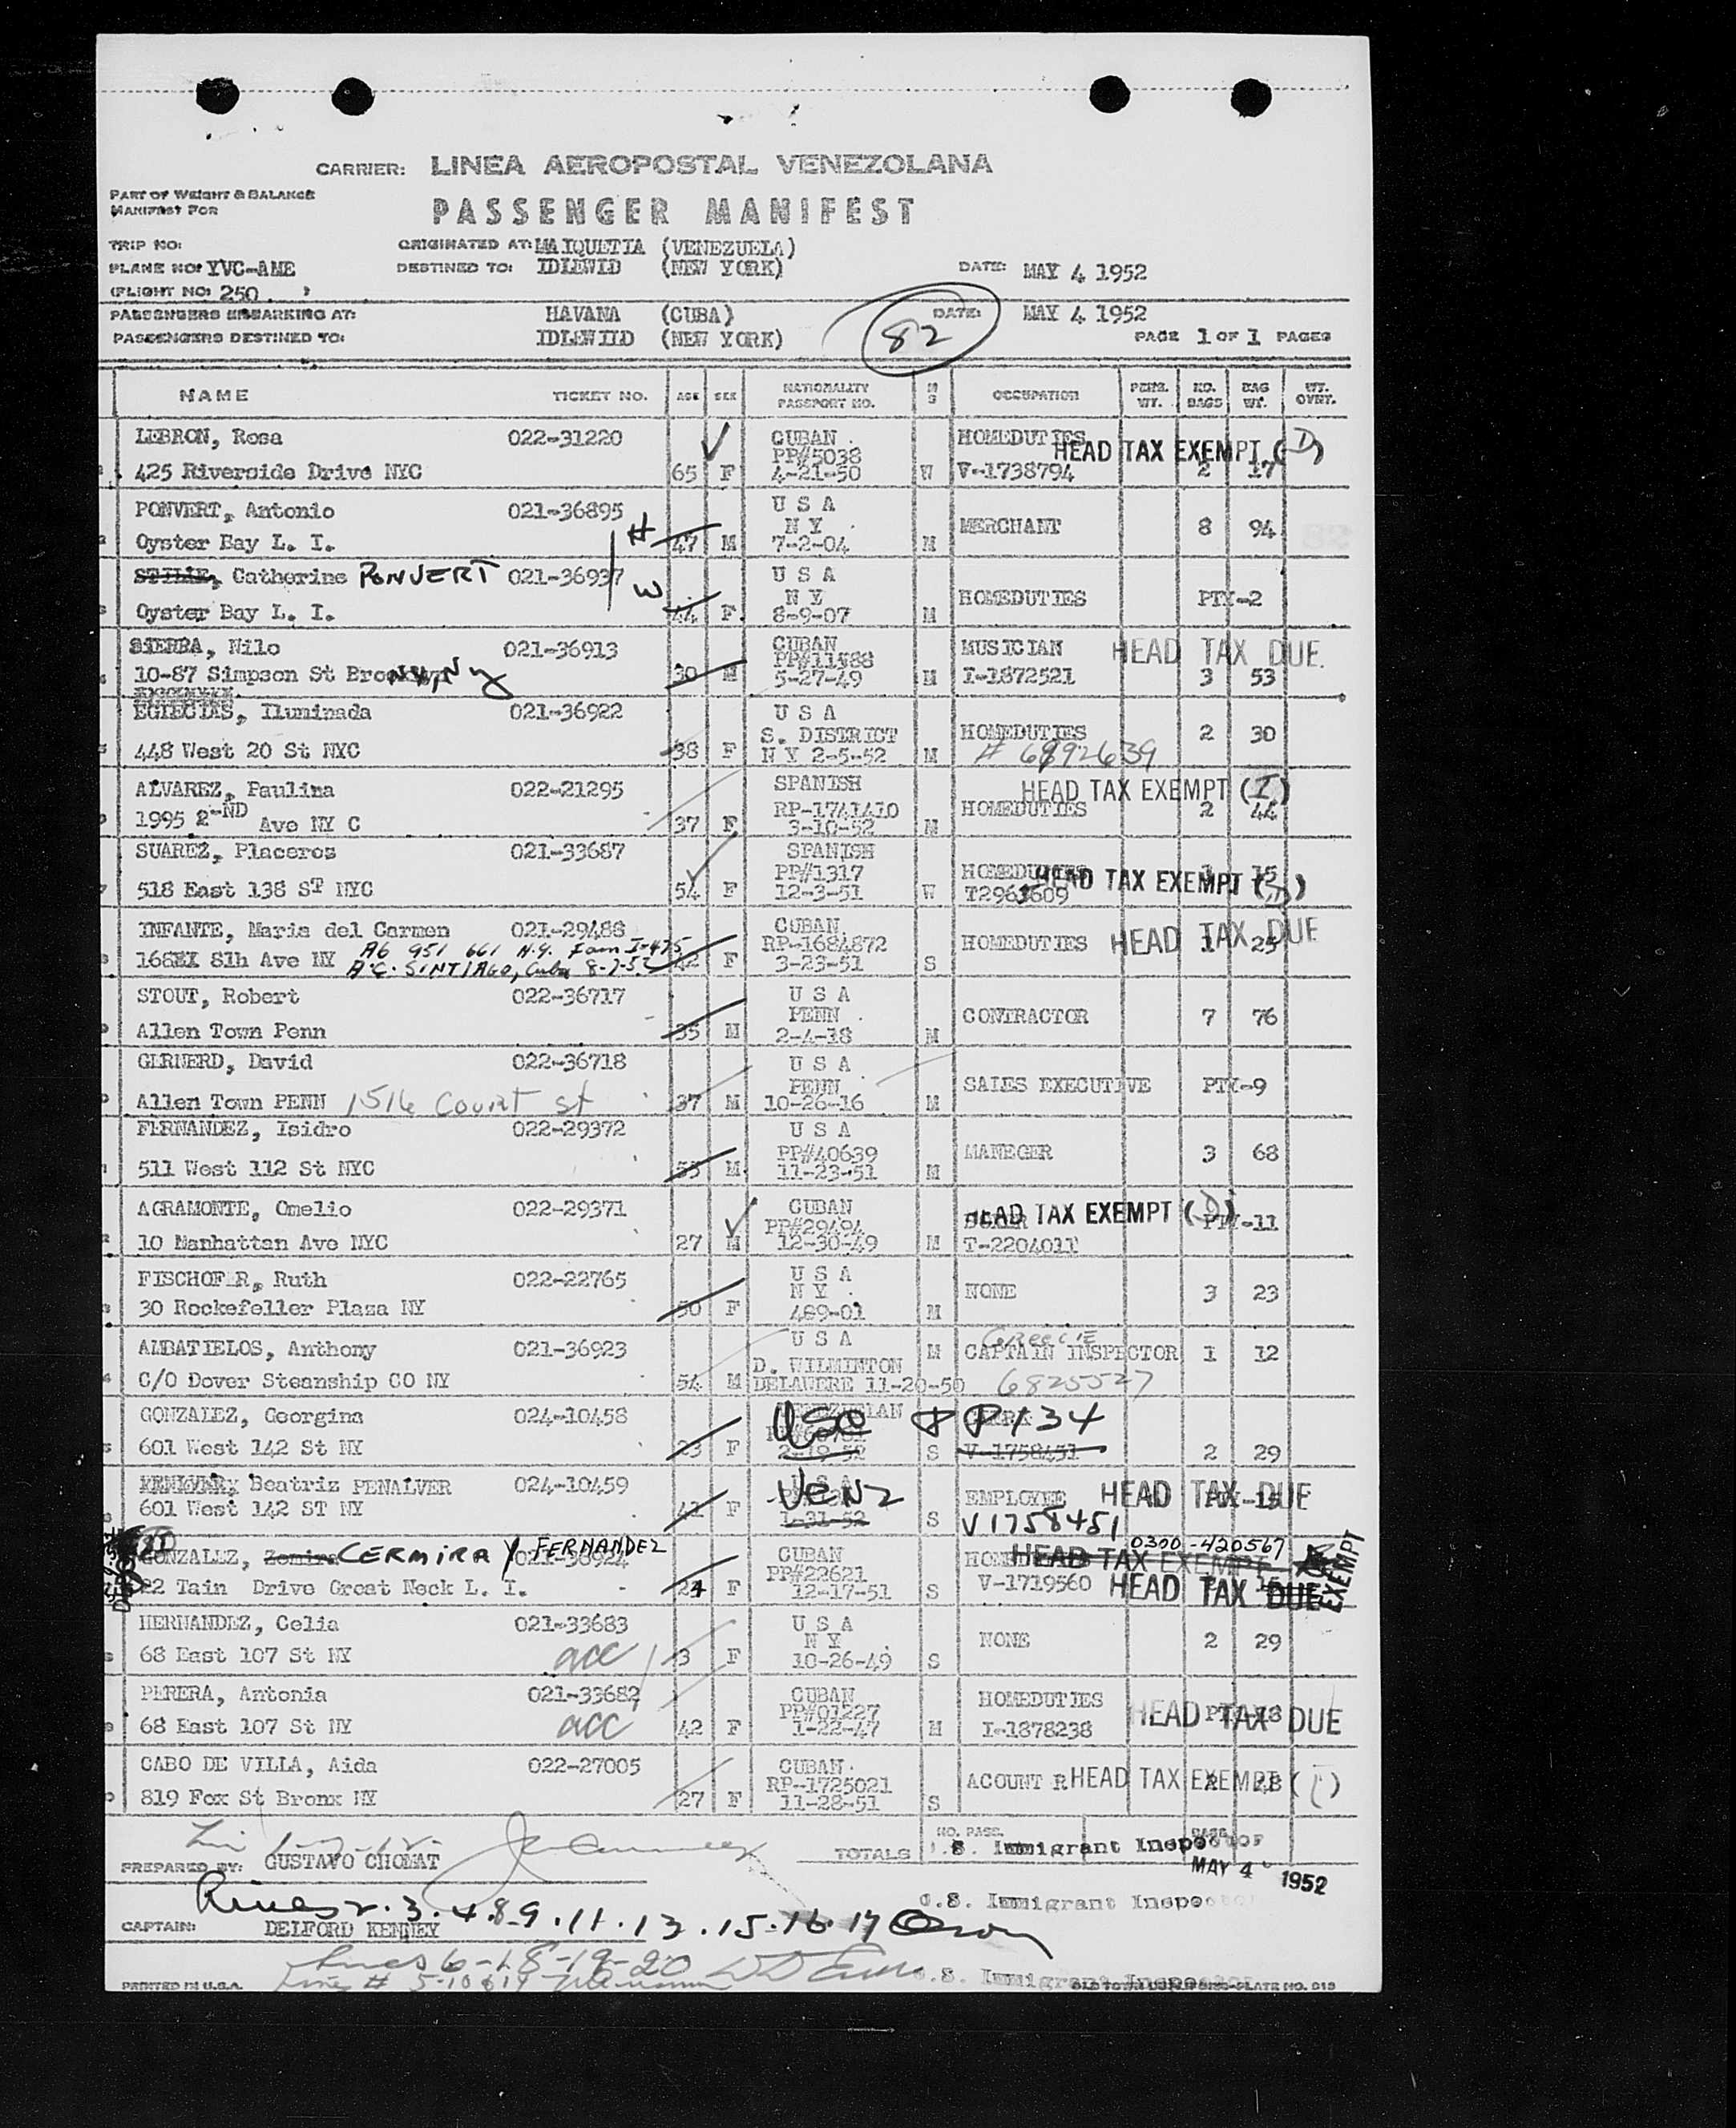 CARRIER: LINEA AEROPOSTAL VENEZOLANA
PART OF WEIGHT & BALANCE
MANIFEST FOR
PASSENGER MANIFEST
TRIP NO: ORIGINATED AT: MAIQUETIA (VENEZUELA)
PLANE NO: YVC-AME DESTINED TO: IDLEWID (NEW YORK) DATE: MAY 4 1952
(FLIGHT NO: 250 )
PASSENGERS EMBARKING AT: HAVANA (CUBA) DATE: MAY 4 1952
82
PASSENGERS DESTINED TO: IDLEWILD (NEW YORK) PAGE 1 OF 1 PAGES
NAME TICKET NO. AGE SEX NATIONALITY PASSPORT NO. M S OCCUPATION PSGR. WT. NO. BAGS BAG WT. WT. OVRT.
LEBRON, Rosa 022-31220 CUBAN HOMEDUTIES HEAD TAX EXEMPT (D)
PP#5038
425 Riverside Drive NYC 65 F 4-21-50 W V-1738794 2 17
PONVERT, Antonio 021-36895 U S A
N Y MERCHANT 8 94
Oyster Bay L. I. H 47 M 7-2-04 M
STILIE, Catherine PONVERT 021-36937 U S A
W N Y HOMEDUTIES PTY-2
Oyster Bay L. I. 44 F 8-9-07 M
SIERRA, Nilo 021-36913 CUBAN MUSICIAN HEAD TAX DUE
PP#11588
10-87 Simpson St NY, NY 30 M 5-27-49 M I-1872521 3 53
EGIECIAS, Iluminada 021-36922 U S A
S. DISTRICT HOMEDUTIES 2 30
448 West 20 St NYC 38 F N Y 2-5-52 M # 6892639
ALVAREZ, Paulina 022-21295 SPANISH HEAD TAX EXEMPT (I)
RP-1741410 HOMEDUTIES 2 44
1995 2-ND Ave NY C 37 F 3-10-52 M
SUAREZ, Placeros 021-33687 SPANISH
PP#1317 HOMEDUTIES 1 15
HEAD TAX EXEMPT (D)
518 East 138 ST NYC 54 F 12-3-51 W T2963609
INFANTE, Maria del Carmen 021-29488 CUBAN
A6 951 661 N.Y. Fam I-475 RP-1684872 HOMEDUTIES HEAD TAX DUE 1 25
168EX 8th Ave NY A.C. SINTIAGO, Cuba 8-7-52 42 F 3-23-51 S
STOUT, Robert 022-36717 U S A
PENN CONTRACTOR 7 76
Allen Town Penn 35 M 2-4-18 M
GERNERD, David 022-36718 U S A
PENN SALES EXECUTIVE PTY-9
Allen Town PENN 1516 Court st 37 M 10-26-16 M
FERNANDEZ, Isidro 022-29372 U S A
PP#40639 MANEGER 3 68
511 West 112 St NYC 55 M 11-23-51 M
AGRAMONTE, Omelio 022-29371 CUBAN HEAD TAX EXEMPT (D)
PP#29494 BOXER PTY-11
10 Manhattan Ave NYC 27 M 12-30-49 M T-2204011
FISCHOFER, Ruth 022-22765 U S A
N Y NONE 3 23
30 Rockefeller Plaza NY 50 F 489-01 M
AMBATIELOS, Anthony 021-36923 U S A M Greece CAPTAIN INSPECTOR 1 12
D. WILMINTON
C/O Dover Steanship CO NY 54 M DELAWERE 11-20-50 6825527
GONZALEZ, Georgina 024-10458 USC PP134
601 West 142 St NY 23 F 2-19-52 S V-1758451 2 29
Beatriz PENALVER 024-10459 VENZ EMPLOYEE HEAD TAX DUE PTY-15
601 West 142 ST NY 41 F 1-31-52 S V1758451
GONZALEZ, Zemira CERMIRA Y FERNANDEZ 021-36924 CUBAN HEAD TAX EXEMPT 0300-420567
PP#22621
22 Tain Drive Great Neck L. I. 24 F 12-17-51 S V-1719560 HEAD TAX DUE EXEMPT
HERNANDEZ, Celia 021-33683 U S A
N Y NONE 2 29
68 East 107 St NY acc 3 F 10-26-49 S
PERERA, Antonia 021-33682 CUBAN HOMEDUTIES
PP#01227 HEAD TAX DUE PTY-18
68 East 107 St NY acc 42 F 1-22-47 M I-1878238
CABO DE VILLA, Aida 022-27005 CUBAN
RP-1725021 ACOUNT R HEAD TAX EXEMPT (I) 2 28
819 Fox St Bronx NY 27 F 11-28-51 S
NO. PASS.
PREPARED BY: GUSTAVO CHOMAT TOTALS U.S. Immigrant Inspector
MAY 4 1952
U.S. Immigrant Inspector
Lines 2.3.4.8-9.11.13.15-16.17
CAPTAIN: DELFORD KENNEY
Lines 6-18-19-20
Line # 5-10 & 14
U.S. Immigrant Inspector
PRINTED IN U.S.A.